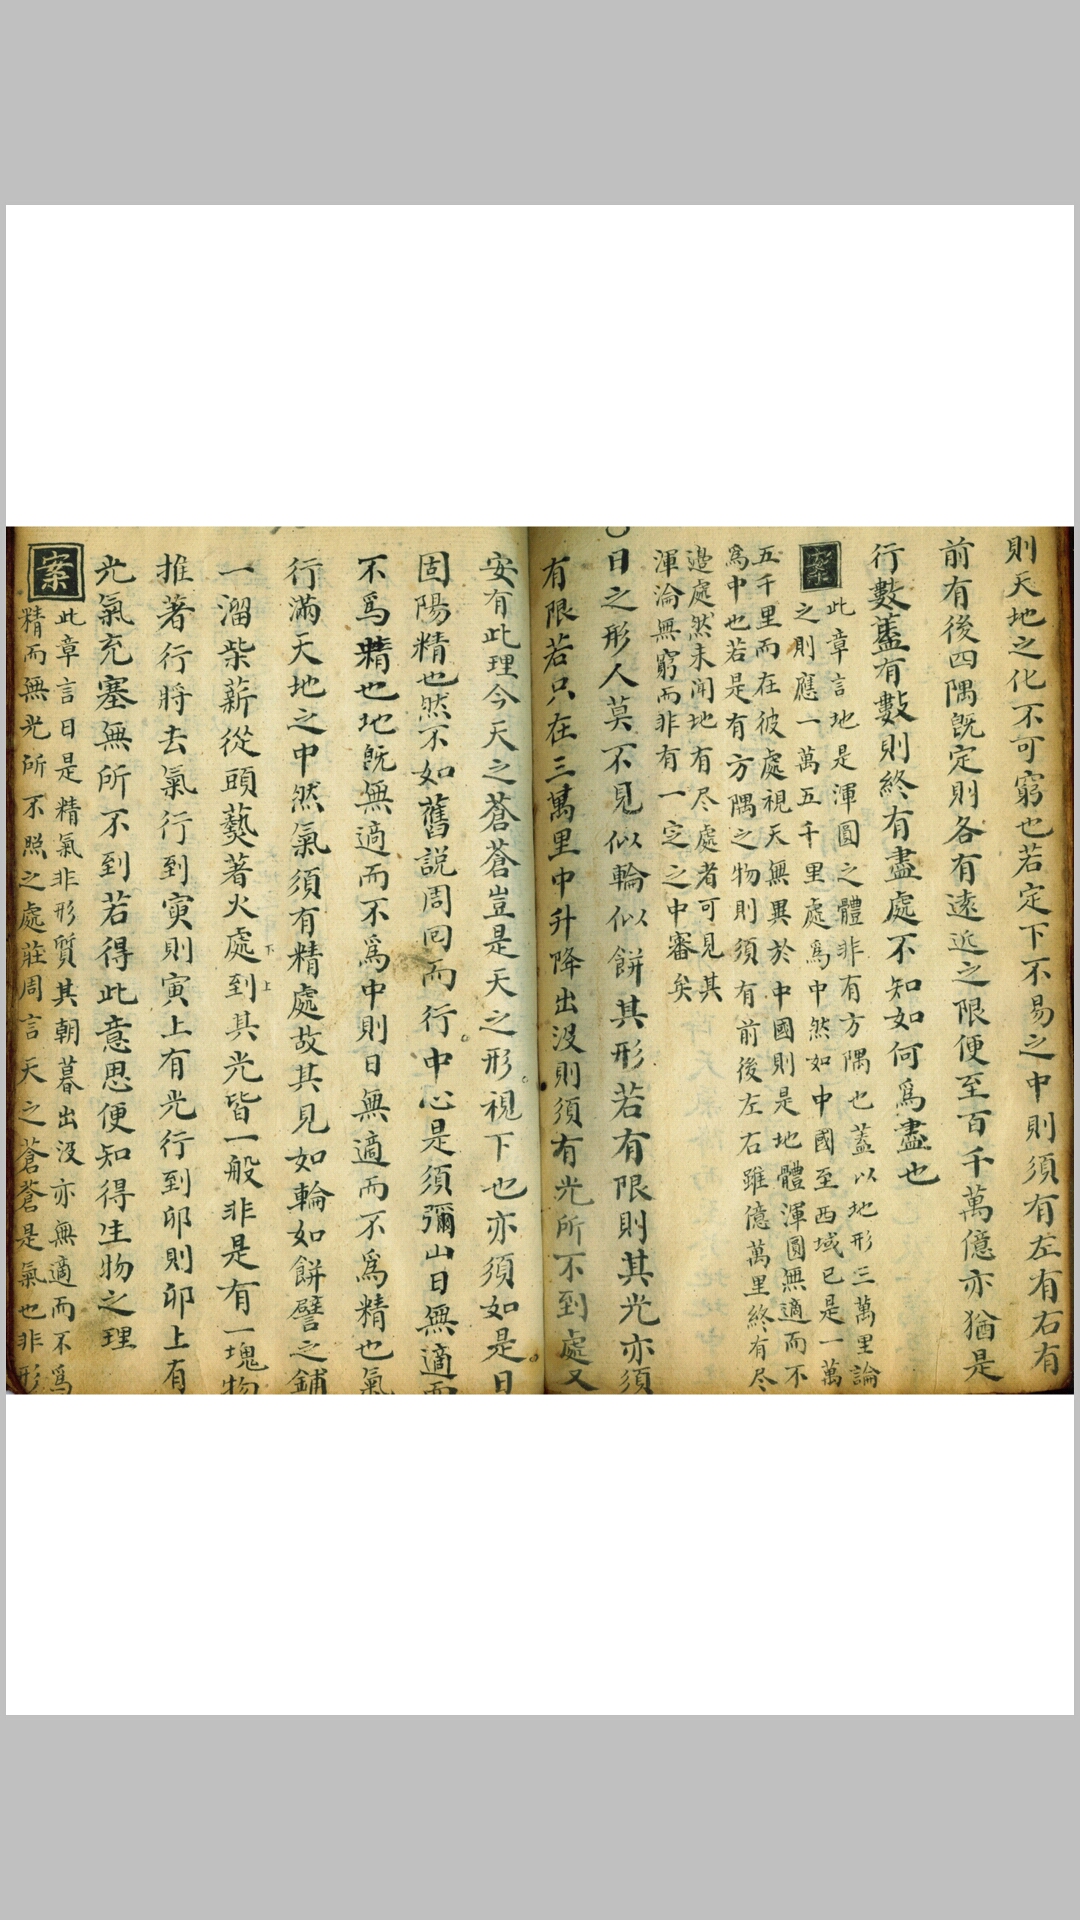 則天地之化不可窮也若定下不易之中則須有左有右有
前有後四隅旣定則各有遠近之限便至百千萬億亦猶是
行數蓋有數則終有盡處不知如何爲盡也
案
此章言地是渾圓之體非有方隅也蓋以地形三萬里論
之則應一萬五千里處爲中然如中國至西域已是一萬
五千里而在彼處視天無異於中國則是地體渾圓無適而不
爲中也若是有方隅之物則須有前後左右雖億萬里終有尽
邉處然未闻地有尽處者可見其
渾淪無窮而非有一定之中審矣
○日之形人莫不見似輪似餅其形若有限則其光亦須
有限若只在三萬里中升降出没則須有光所不到處又
安有此理今天之蒼蒼豈是天之形視下也亦須如是日
固陽精也然不如舊説周回而行中心是須彌山日無適而
不爲精也地旣無適而不爲中則日無適而不爲精也氣
行滿天地之中然氣須有精處故其見如輪如餅譬之鋪
一溜柴薪從頭爇著火處下到上其光皆一般非是有一塊物
推著行將去氣行到寅則寅上有光行到卯則卯上有
光氣充塞無所不到若得此意思便知得生物之理
案
此章言日是精氣非形質其朝暮出没亦無適而不爲
精而無光所不照之處莊周言天之蒼蒼是氣也非形